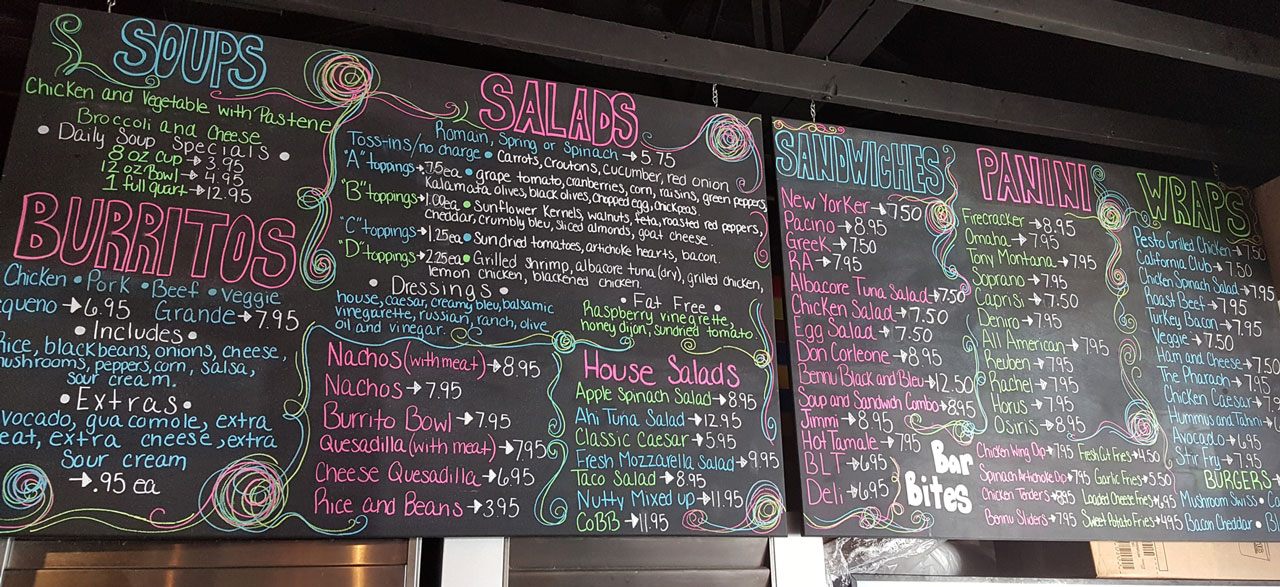 SOUPS
Chicken and Vegetable with Pastene
Broccoli and Cheese
• Daily Soup Specials •
8 oz cup → 3.95
12 oz Bowl → 4.95
1 full quart → 12.95
BURRITOS
Chicken • Pork • Beef • Veggie
queno → 6.95 Grande → 7.95
• Includes •
Rice, black beans, onions, cheese,
mushrooms, peppers, corn, salsa,
sour cream.
• Extras •
vocado, guacomole, extra
eat, extra cheese, extra
Sour cream
→ .95 ea
SALADS
Romain, Spring or Spinach → 5.75
Toss-ins/no charge • Carrots, Croutons, cucumber, red onion
"A" toppings → .75ea • grape tomato, cranberries, corn, raisins, green peppers,
Kalamata olives, black olives, chopped egg, chickpeas.
"B" toppings → 1.00ea • Sunflower Kernels, walnuts, feta, roasted red peppers,
cheddar, crumbly bleu, sliced almonds, goat cheese.
"C" toppings → 1.25ea • Sundried tomatoes, artichoke hearts, bacon.
"D" toppings → 2.25ea • Grilled shrimp, albacore tuna (dry), grilled chicken,
lemon chicken, blackened chicken.
• Dressings •
house, caesar, creamy bleu, balsamic
vinegarette, russian, ranch, olive
oil and vinegar.
• Fat Free •
Raspberry vinegrette,
honey dijon, sundried tomato
Nachos (with meat) → 8.95
Nachos → 7.95
Burrito Bowl → 7.95
Quesadilla (with meat) → 7.95
Cheese Quesadilla → 6.95
Rice and Beans → 3.95
House Salads
Apple Spinach Salad → 8.95
Ahi Tuna Salad → 12.95
Classic Caesar → 5.95
Fresh Mozzarella Salad → 9.95
Taco Salad → 8.95
Nutty Mixed up → 11.95
CoBB → 11.95
SANDWICHES
New Yorker → 7.50
Pacino → 8.95
Greek → 7.50
RA → 7.95
Albacore Tuna Salad → 7.50
Chicken Salad → 7.50
Egg Salad → 7.50
Don Corleone → 8.95
Bennu Black and Bleu → 12.50
Soup and Sandwich Combo → 8.95
Jimmi → 8.95
Hot Tamale → 7.95
BLT → 6.95
Deli → 6.95
PANINI
Firecracker → 8.95
Omaha → 7.95
Tony Montana → 7.95
Soprano → 7.95
Caprisi → 7.50
Deniro → 7.95
All American → 7.95
Reuben → 7.95
Rachel → 7.95
Horus → 7.95
Osiris → 8.95
Bar
Bites
Chicken Wing Dip → 7.95 Fresh Cut Fries → 4.50
Spinach Artichoke Dip → 7.95 Garlic Fries → 5.50
Chicken Tenders → 8.95 Loaded Cheese Fries → 6.95
Bennu Sliders → 7.95 Sweet Potato Fries → 4.95
WRAPS
Pesto Grilled Chicken → 7.50
California Club → 7.50
Chicken Spinach Salad → 7.95
Roast Beef → 7.95
Turkey Bacon → 7.95
Veggie → 7.50
Ham and Cheese → 7.50
The Pharaoh → 7.95
Chicken Caesar →
Hummus and Tahini →
Avocado → 6.95
Stir Fry → 7.95
BURGERS
Mushroom Swiss •
Bacon Cheddar •